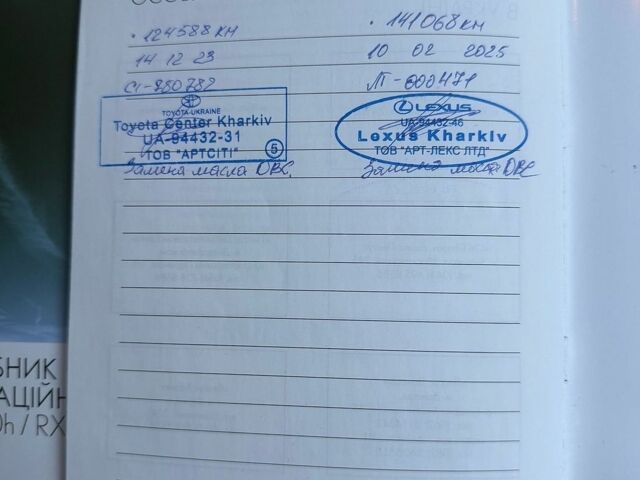 124588 км
14 12 23
TOYOTA-UKRAINE
Toyota Center Kharkiv
UA-94432-31
ТОВ "АРТСІТІ"
5
Замена масла ДВС.
141068 км
10 02 2025
ЛТ-000471
LEXUS
UA-94432-46
Lexus Kharkiv
ТОВ "АРТ-ЛЕКС ЛТД"
Замена масла ДВС